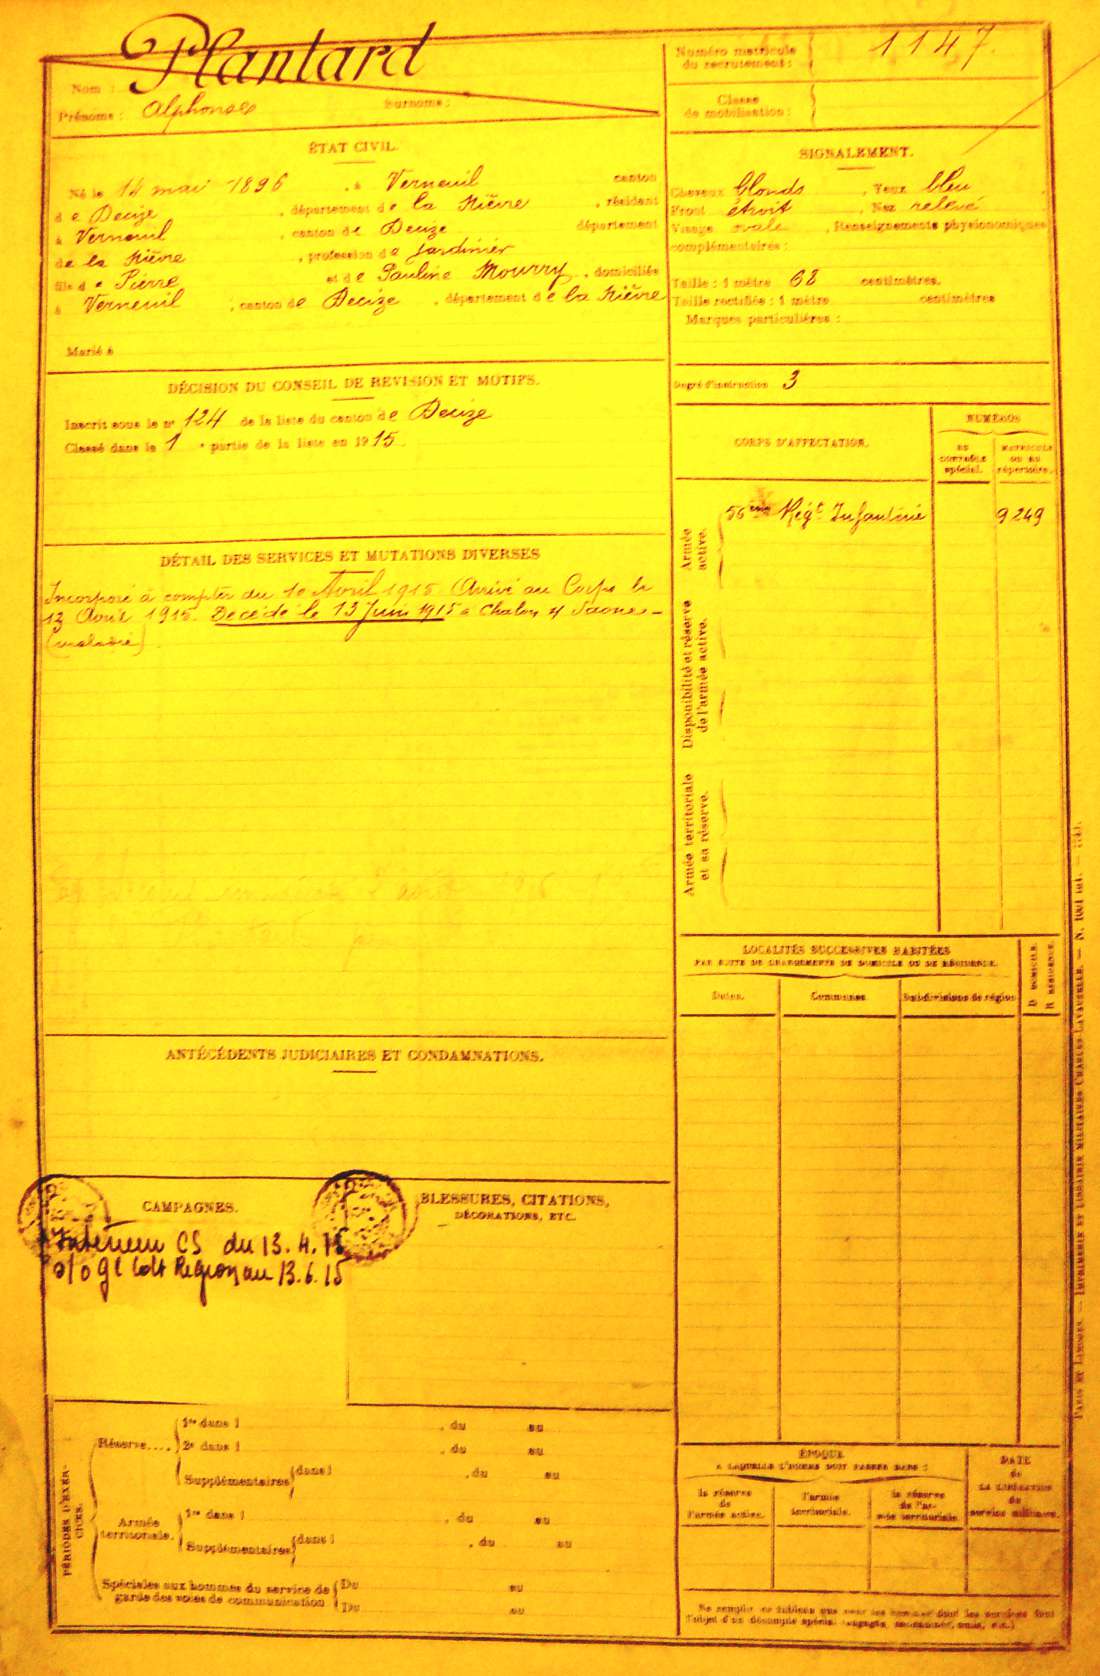 Nom : Plantard
Prénoms : Alphonse Surnoms :
Numéro matricule du recrutement : 1147.
Classe de mobilisation :
ÉTAT CIVIL.
Né le 14 mai 1896, à Verneuil canton
de Decize, département de la Nièvre, résidant
à Verneuil, canton de Decize département
de la Nièvre, profession de Jardinier
fils de Pierre et de Pauline Mourry, domiciliés
à Verneuil, canton de Decize, département de la Nièvre
Marié à
SIGNALEMENT.
Cheveux blonds, Yeux bleu
Front étroit, Nez relevé
Visage ovale, Renseignements physionomiques
complémentaires :
Taille : 1 mètre 68 centimètres.
Taille rectifiée : 1 mètre centimètres
Marques particulières :
Degré d'instruction 3
DÉCISION DU CONSEIL DE REVISION ET MOTIFS.
Inscrit sous le nº 124 de la liste du canton de Decize
Classé dans la 1 e partie de la liste en 1915
DÉTAIL DES SERVICES ET MUTATIONS DIVERSES
Incorporé à compter du 10 Avril 1915 Arrivé au Corps le
13 Avril 1915. Décédé le 13 Juin 1915 à Chalon s/ Saone -
(maladie)
CORPS D'AFFECTATION.
NUMÉROS
AU CONTRÔLE spécial.
MATRICULE OU AU répertoire.
Armée active.
56ème Régt Infanterie 9249
Disponibilité et réserve de l'armée active.
Armée territoriale et sa réserve.
LOCALITÉS SUCCESSIVES HABITÉES
PAR SUITE DE CHANGEMENTS DE DOMICILE OU DE RÉSIDENCE.
Dates. Communes Subdivisions de région
D DOMICILE.
R RÉSIDENCE.
ANTÉCÉDENTS JUDICIAIRES ET CONDAMNATIONS.
CAMPAGNES.
Intérieur CS du 13.4.15
Region au 13.6.15
BLESSURES, CITATIONS,
DÉCORATIONS, ETC.
PÉRIODES D'EXERCICES.
Réserve....
1re dans l , du au
2e dans l , du au
Supplémentaires dans l , du au
Armée territoriale.
1re dans l , du au
Supplémentaires dans l , du au
Spéciales aux hommes du service de
garde des voies de communication
Du au
Du au
ÉPOQUE
A LAQUELLE L'HOMME DOIT PASSER DANS :
la réserve de l'armée active.
l'armée territoriale.
la réserve de l'armée territoriale
DATE de LA LIBÉRATION du service militaire.
PARIS ET LIMOGES. — IMPRIMERIE ET LIBRAIRIE MILITAIRES CHARLES-LAVAUZELLE. —